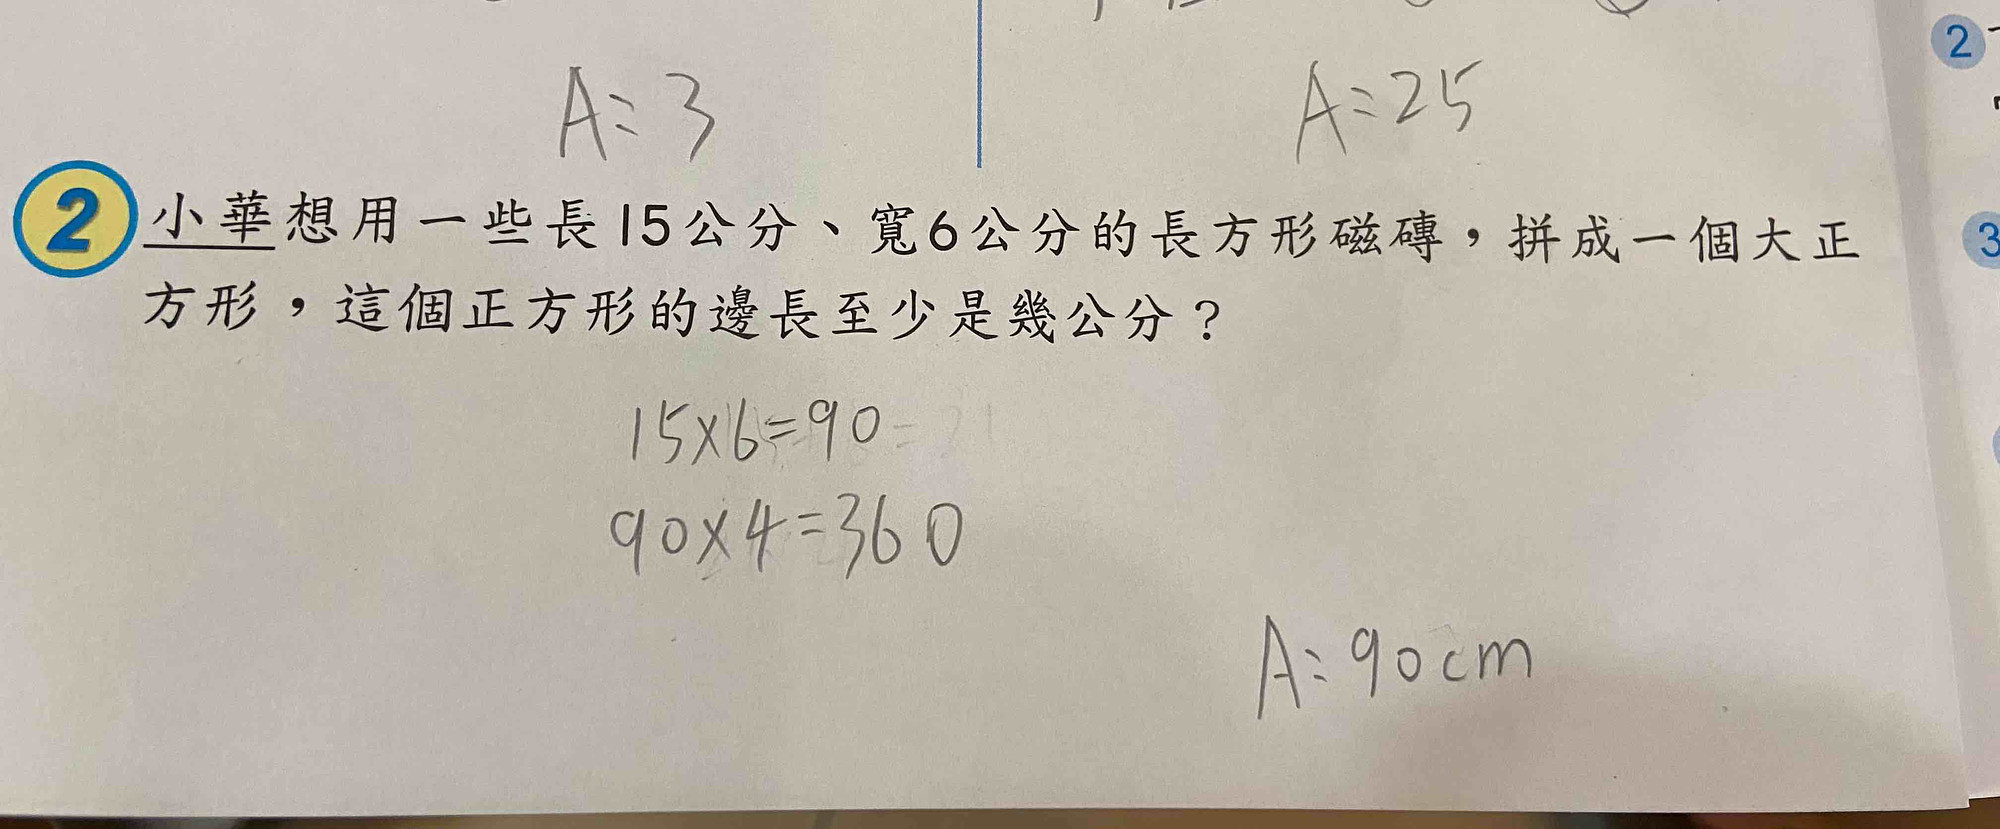 A: 3
A: 25
2
2 小華想用一些長15公分、寬6公分的長方形磁磚，拼成一個大正
方形，這個正方形的邊長至少是幾公分？
3
15×6=90
90×4=360
A: 90cm